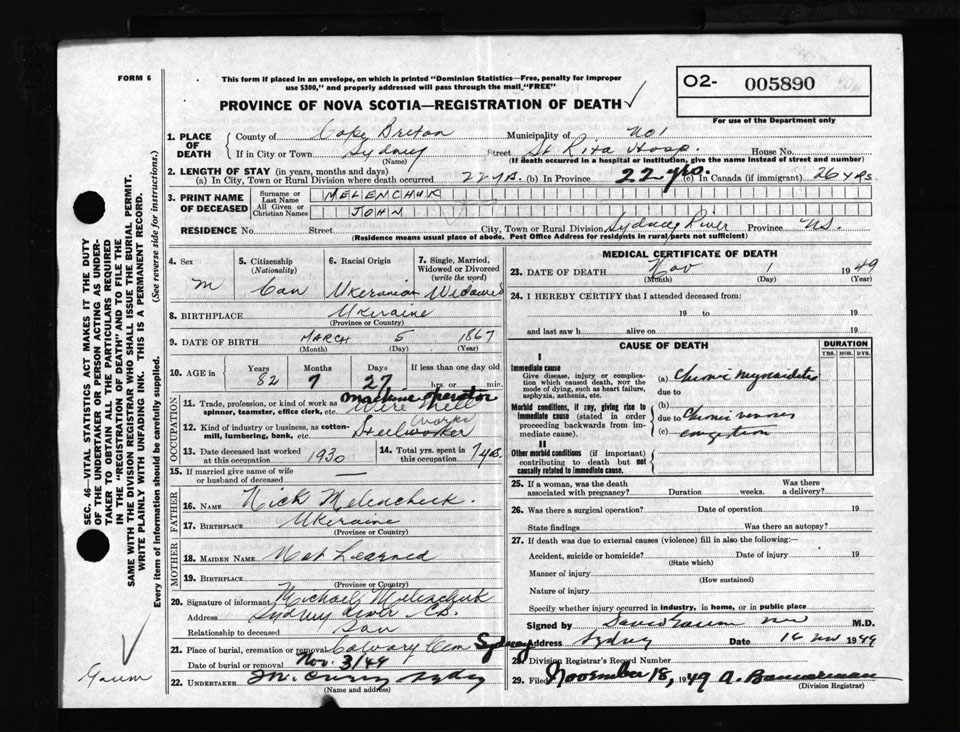 FORM 6
This form if placed in an envelope, on which is printed "Dominion Statistics—Free, penalty for improper
use $300," and properly addressed will pass through the mail "FREE"
O2- 005890
For use of the Department only
PROVINCE OF NOVA SCOTIA—REGISTRATION OF DEATH ✓
1. PLACE OF DEATH
County of Cape Breton Municipality of No 1
If in City or Town Sydney Street St Rita Hosp. House No.
(Name) (If death occurred in a hospital or institution, give the name instead of street and number)
2. LENGTH OF STAY (in years, months and days)
(a) In City, Town or Rural Division where death occurred 22 yrs. (b) In Province 22 yrs. (c) In Canada (if immigrant) 26 yrs.
3. PRINT NAME OF DECEASED
Surname or Last Name MELENCHUK
All Given or Christian Names JOHN
RESIDENCE No. Street City, Town or Rural Division Sydney River Province N.S.
(Residence means usual place of abode. Post Office Address for residents in rural parts not sufficient)
4. Sex M
5. Citizenship (Nationality) Can
6. Racial Origin Ukeranian
7. Single, Married, Widowed or Divorced (write the word) Widowed
8. BIRTHPLACE Ukeraine
(Province or Country)
9. DATE OF BIRTH MARCH 5 1867
(Month) (Day) (Year)
10. AGE in Years 82 Months 7 Days 27 If less than one day old hrs. or min.
OCCUPATION
11. Trade, profession, or kind of work as spinner, teamster, office clerk, etc. Machine operator Wire Mill
12. Kind of industry or business, as cotton-mill, lumbering, bank, etc. Steelworker works
13. Date deceased last worked at this occupation 1930
14. Total yrs. spent in this occupation 7 yrs.
15. If married give name of wife or husband of deceased —
FATHER
16. NAME Nick Melencheck.
17. BIRTHPLACE Ukeraine
(Province or Country)
MOTHER
18. MAIDEN NAME Not Learned
19. BIRTHPLACE
(Province or Country)
20. Signature of informant Michael Melenchuk
Address Sydney River C.B.
Relationship to deceased Son
21. Place of burial, cremation or removal Calvary Cem Sydney
Date of burial or removal Nov. 3/49
22. UNDERTAKER Sydney
(Name and address)
MEDICAL CERTIFICATE OF DEATH
23. DATE OF DEATH Nov 1 1949
(Month) (Day) (Year)
24. I HEREBY CERTIFY that I attended deceased from:
19 to 19
and last saw h alive on 19
CAUSE OF DEATH
DURATION
YRS. MOS. DYS.
I
Immediate cause
Give disease, injury or complication which caused death, not the mode of dying, such as heart failure, asphyxia, asthenia, etc.
(a) Chronic myocarditis
due to
Morbid conditions, if any, giving rise to immediate cause (stated in order proceeding backwards from immediate cause).
(b) Chronic venous
due to
(c) congestion
II
Other morbid conditions (if important) contributing to death but not causally related to immediate cause.
25. If a woman, was the death associated with pregnancy? Duration weeks. Was there a delivery?
26. Was there a surgical operation? Date of operation 19
State findings Was there an autopsy?
27. If death was due to external causes (violence) fill in also the following:—
Accident, suicide or homicide? Date of injury 19
(State which)
Manner of injury
(How sustained)
Nature of injury
Specify whether injury occurred in industry, in home, or in public place
Signed by David Gaum MD M.D.
Address Sydney Date 16 Nov 1949
28. Division Registrar's Record Number
29. Filed November 18, 1949 A. Bannerman
(Division Registrar)
SEC. 46—VITAL STATISTICS ACT MAKES IT THE DUTY
OF THE UNDERTAKER OR PERSON ACTING AS UNDER-
TAKER TO OBTAIN ALL THE PARTICULARS REQUIRED
IN THE "REGISTRATION OF DEATH" AND TO FILE THE
SAME WITH THE DIVISION REGISTRAR WHO SHALL ISSUE THE BURIAL PERMIT.
WRITE PLAINLY WITH UNFADING INK. THIS IS A PERMANENT RECORD.
Every item of information should be carefully supplied. (See reverse side for instructions.)
Gaum